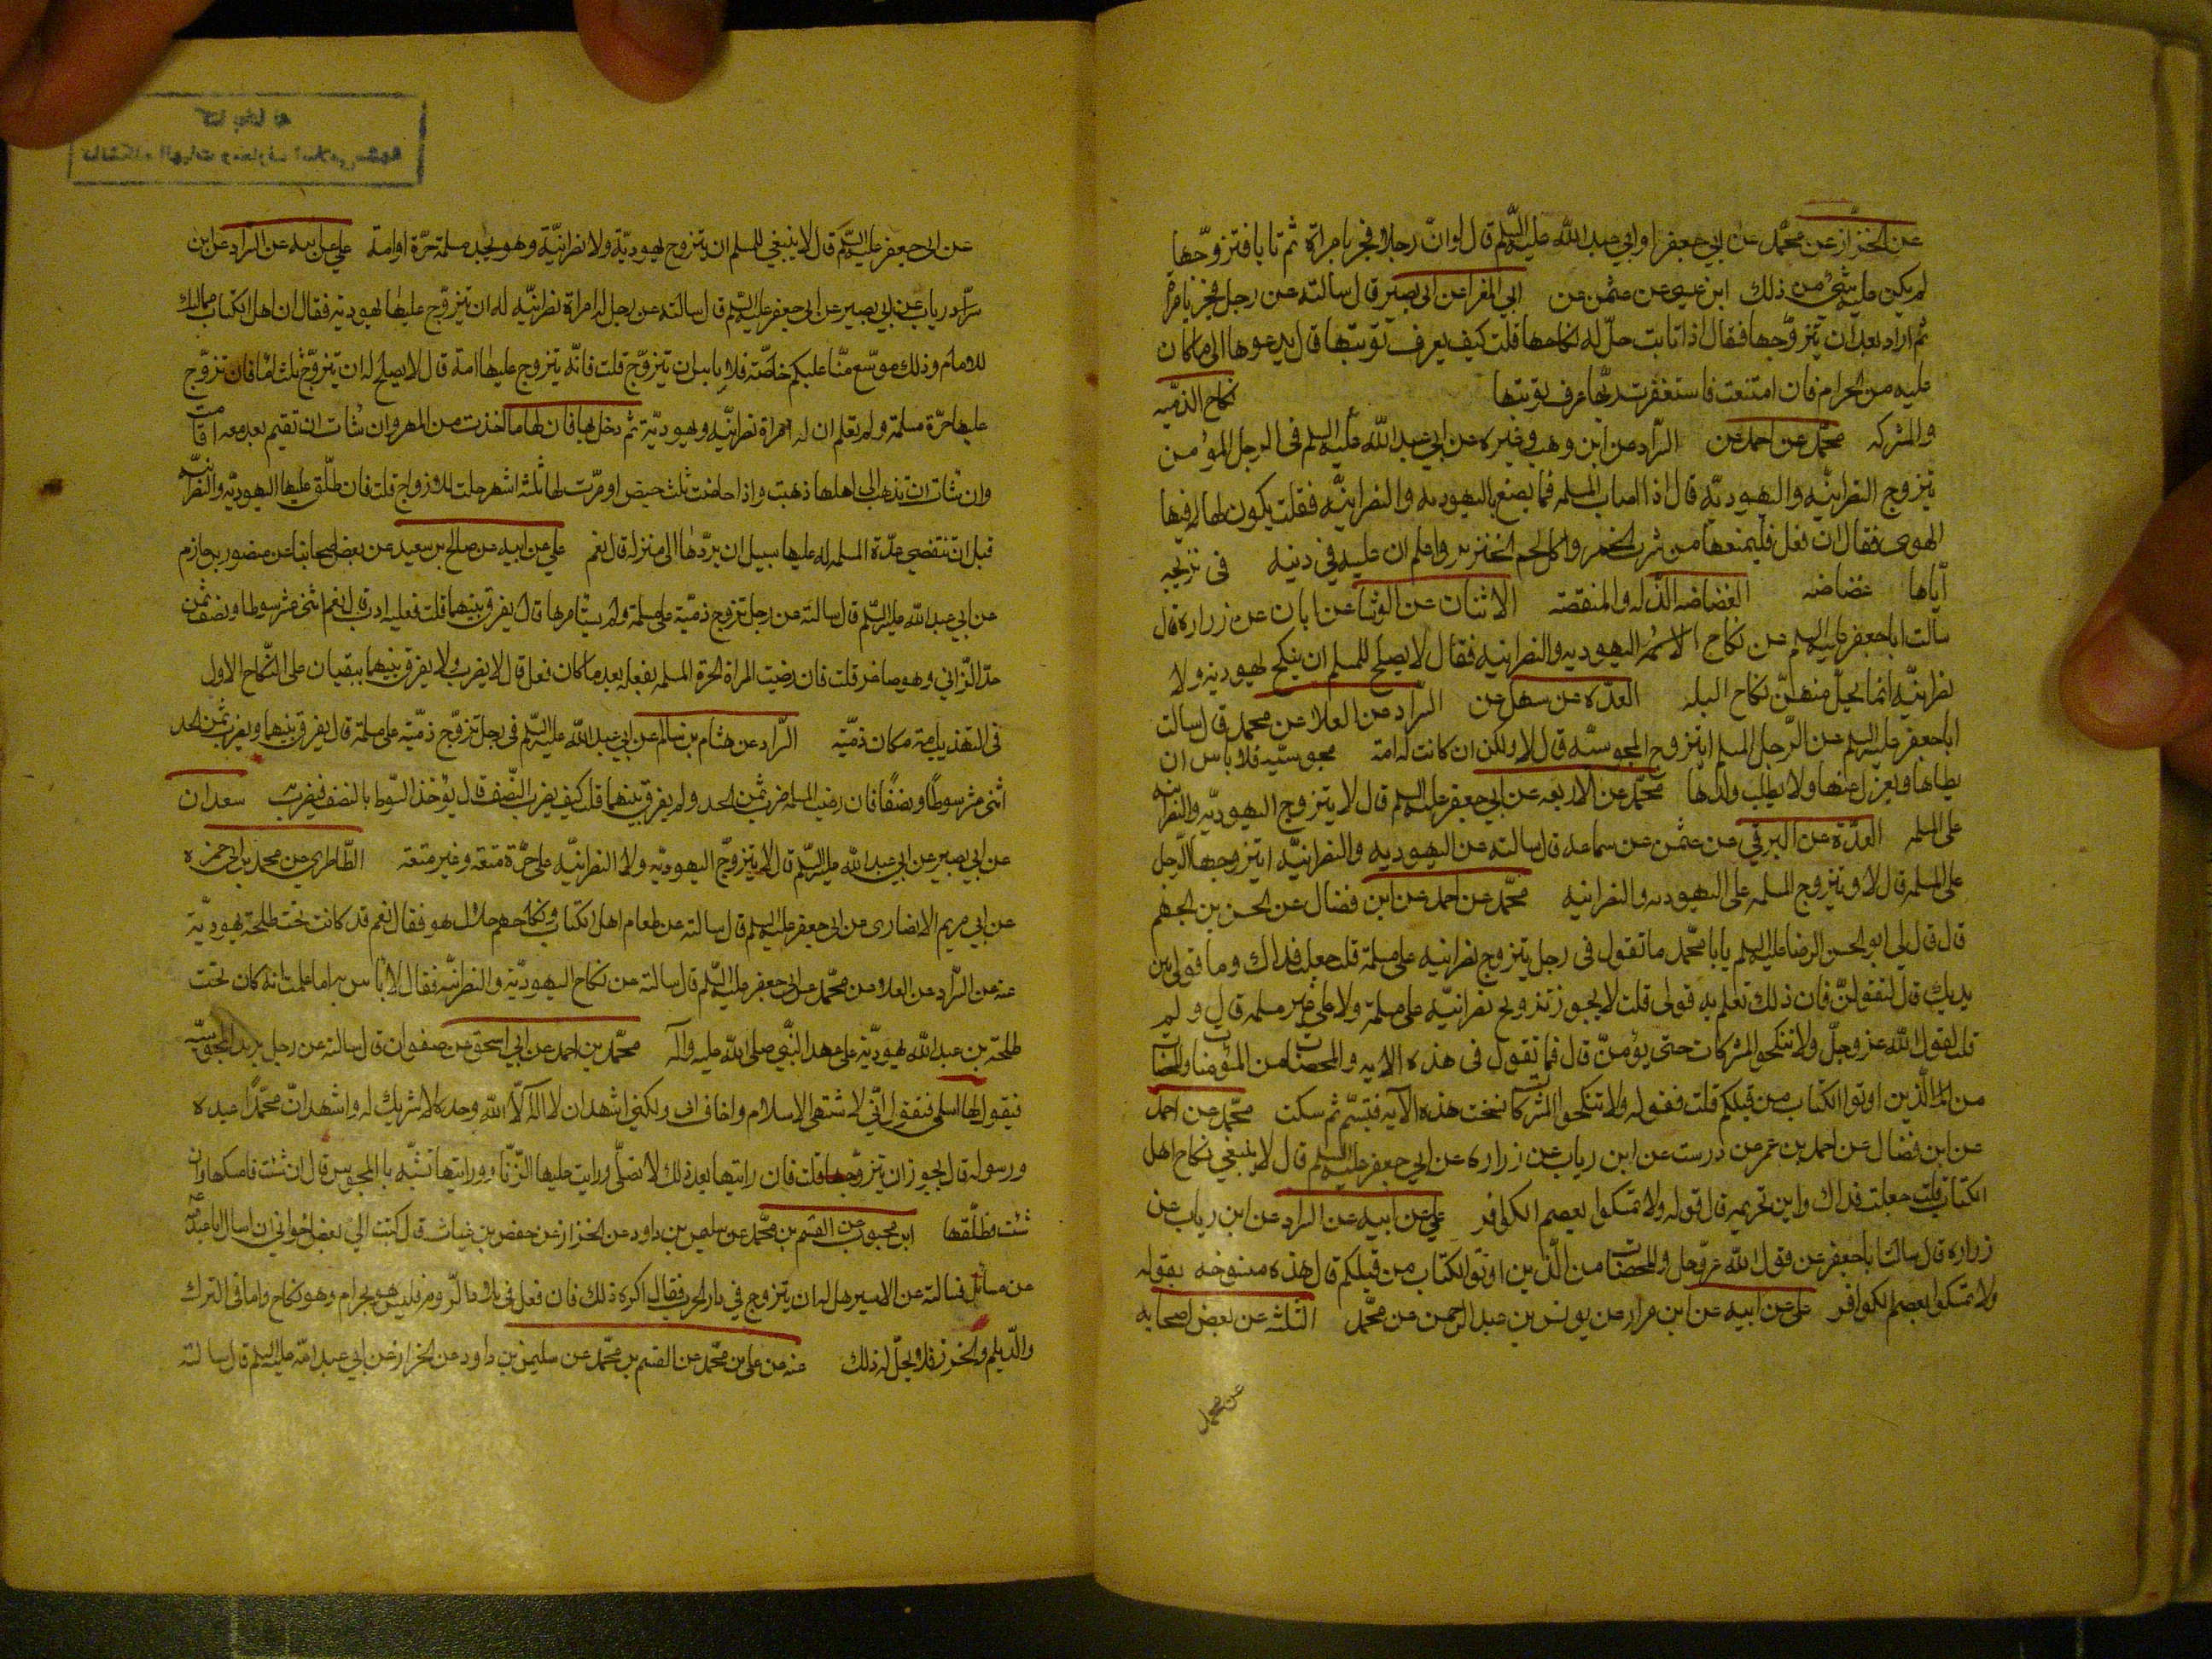 عن الخزاز عن محمد عن ابي جعفر او ابي عبد الله عليه السلم قال لو ان رجلا فجر بامراة ثم تابا فتزوجها
لم يكن عليه شئ من ذلك ابن عيسى عن عثمن عن ابي المغرا عن ابي بصير قال سالته عن رجل فجر بامراة
ثم اراد بعد ان يتزوجها فقال اذا تابت حل له نكاحها قلت كيف يعرف توبتها قال يدعوها الى ما كان
عليه من الحرام فان امتنعت فاستغفرت ربها عرف توبتها نكاح الذميه
والمشركه محمد عن احمد عن السراد عن ابن وهب وغيره عن ابي عبد الله عليه السلم في الرجل المؤمن
يتزوج النصرانيه واليهوديه قال اذا اصاب المسلمه فما يصنع باليهوديه والنصرانيه فقلت يكون له فيها
الهوى فقال ان فعل فليمنعها من شرب الخمر واكل لحم الخنزير واعلم ان عليه في دينه في تزويجه
اياها غضاضه الغضاضه الذله والمنقصه الاثنان عن الوشا عن ابان عن زراره قال
سالت ابا جعفر عليه السلم عن نكاح اليهوديه والنصرانيه فقال لا يصلح للمسلم ان ينكح يهوديه ولا
نصرانيه انما يحل منهن نكاح البله العده عن سهل عن السراد عن العلا عن محمد قال سالت
ابا جعفر عليه السلم عن الرجل المسلم ايتزوج المجوسيه قال لا ولكن ان كانت له امة مجوسيه فلا باس ان
يطاها ويعزل عنها ولا يطلب ولدها محمد عن الاربعه عن ابي جعفر عليه السلم قال لا يتزوج اليهوديه والنصرانيه
على المسلمه العده عن البرقي عن عثمن عن سماعه قال سالته عن اليهوديه والنصرانيه ايتزوجها الرجل
على المسلمه قال لا ويتزوج المسلمه على اليهوديه والنصرانيه محمد عن احمد عن ابن فضال عن الحسن بن الجهم
قال قال لي ابو الحسن الرضا عليه السلم يابا محمد ما تقول في رجل يتزوج نصرانيه على مسلمة قلت جعلت فداك وما قولي بين
يديك قال لتقولن فان ذلك تعلم به قولي قلت لا يجوز تزويج نصرانيه على مسلمة ولا على غير مسلمه قال ولم
قلت لقول الله عز وجل ولا تنكحوا المشركات حتى يؤمن قال فما تقول في هذه الايه والمحصنات من المؤمنات والمحصنات
من الذين اوتوا الكتاب من قبلكم قلت فقوله ولا تنكحوا المشركات نسخت هذه الآيه فتبسم ثم سكت محمد عن احمد
عن ابن فضال عن احمد بن عمر عن درست عن ابن رياب عن زراره عن ابي جعفر عليه السلم قال لا ينبغي نكاح اهل
الكتاب قلت جعلت فداك واين تحريمه قال قوله ولا تمسكوا بعصم الكوافر علي عن ابيه عن السراد عن ابن رياب عن
زراره قال سالت ابا جعفر عن قول الله عز وجل والمحصنات من الذين اوتوا الكتاب من قبلكم قال هذه منسوخه بقوله
ولا تمسكوا بعصم الكوافر علي عن ابيه عن ابن مرار عن يونس بن عبد الرحمن عن محمد الثلثه عن بعض اصحابه
عن محمد
عن ابي جعفر عليه السلم قال لا ينبغي للمسلم ان يتزوج يهودية ولا نصرانية وهو يجد مسلمة حرة او امة علي عن ابيه عن السراد عن ابن
رياب عن ابي بصير عن ابي جعفر عليه السلم قال سالته عن رجل له امراة نصرانيه له ان يتزوج عليها يهوديه فقال ان اهل الكتاب مماليك
للامام وذلك موسع منا عليكم خاصه فلا باس ان يتزوج قلت فانه يتزوج عليها امة قال لا يصلح له ان يتزوج ثلث اماء فان تزوج
عليها حرة مسلمة ولم تعلم ان له امراة نصرانيه ويهوديه ثم دخل بها فان لها ما اخذت من المهر وان شات ان تقيم بعد معه اقامت
وان شات ان تذهب الى اهلها ذهبت واذا حاضت ثلث حيض او مرت لها ثلثة اشهر حلت للازواج قلت فان طلق عليها اليهوديه والنصرانيه
قبل ان تنقضي عدة المسلمه له عليها سبيل ان يردها الى منزله قال نعم علي عن ابيه عن صالح بن سعيد عن بعض اصحابنا عن منصور بن حازم
عن ابي عبد الله عليه السلم قال سالته عن رجل تزوج ذمية على مسلمة ولم يستامرها قال يفرق بينهما قلت فعليه ادب قال نعم اثنى عشر سوطا ونصف ثمن
حد الزاني وهو صاغر قلت فان رضيت المراة الحرة المسلمه بفعله بعد ما كان فعل قال لا يضرب ولا يفرق بينهما يبقيان على النكاح الاول
في التهذيب امة مكان ذميه السراد عن هشام بن سالم عن ابي عبد الله عليه السلم في رجل تزوج ذميه على مسلمة قال يفرق بينهما ويضرب ثمن الحد
اثنى عشر سوطا ونصفا فان رضيت المسلمه ضرب ثمن الحد ولم يفرق بينهما قلت كيف يضرب النصف قال يؤخذ السوط بالنصف فيضرب سعدان
عن ابي بصير عن ابي عبد الله عليه السلم قال لا يتزوج اليهوديه ولا النصرانيه على حرة متعة وغير متعة الطاطري عن محمد بن ابي حمزه
عن ابي مريم الانصاري عن ابي جعفر عليه السلم قال سالته عن طعام اهل الكتاب ونكاحهم حلال هو فقال نعم قد كانت تحت طلحة يهودية
عنه عن السراد عن العلا عن محمد عن ابي جعفر عليه السلم قال سالته عن نكاح اليهودية والنصرانيه فقال لا باس به اما علمت انه كان تحت
طلحة بن عبد الله يهودية على عهد النبي صلى الله عليه وآله محمد بن احمد عن ابي اسحق عن صفوان قال سالته عن رجل يريد المجوسيه
فيقول لها اسلمي فتقول اني لا شتهي الاسلام واخاف ابي ولكني اشهد ان لا اله الا الله وحده لا شريك له واشهد ان محمدا عبده
ورسوله قال يجوز ان يتزوجها قلت فان رايتها بعد ذلك لا تصلي ورايت عليها الزنا ورايتها تشبه بالمجوس قال ان شئت فامسكها وان
شئت فطلقها ابن محبوب عن القسم بن محمد عن سليمن بن داود عن الخزاز عن حفص بن غياث قال كتب الي بعض اخواني ان اسال ابا عبد الله
عن مسائل فسالته عن الاسير هل له ان يتزوج في دار الحرب فقال اكره ذلك فان فعل في بلاد الروم فليس هو بحرام وهو نكاح واما في الترك
والديلم والخزر فلا يحل له ذلك عنه عن علي بن محمد عن القسم بن محمد عن سليمن بن داود عن الخزاز عن ابي عبد الله عليه السلم قال سالته